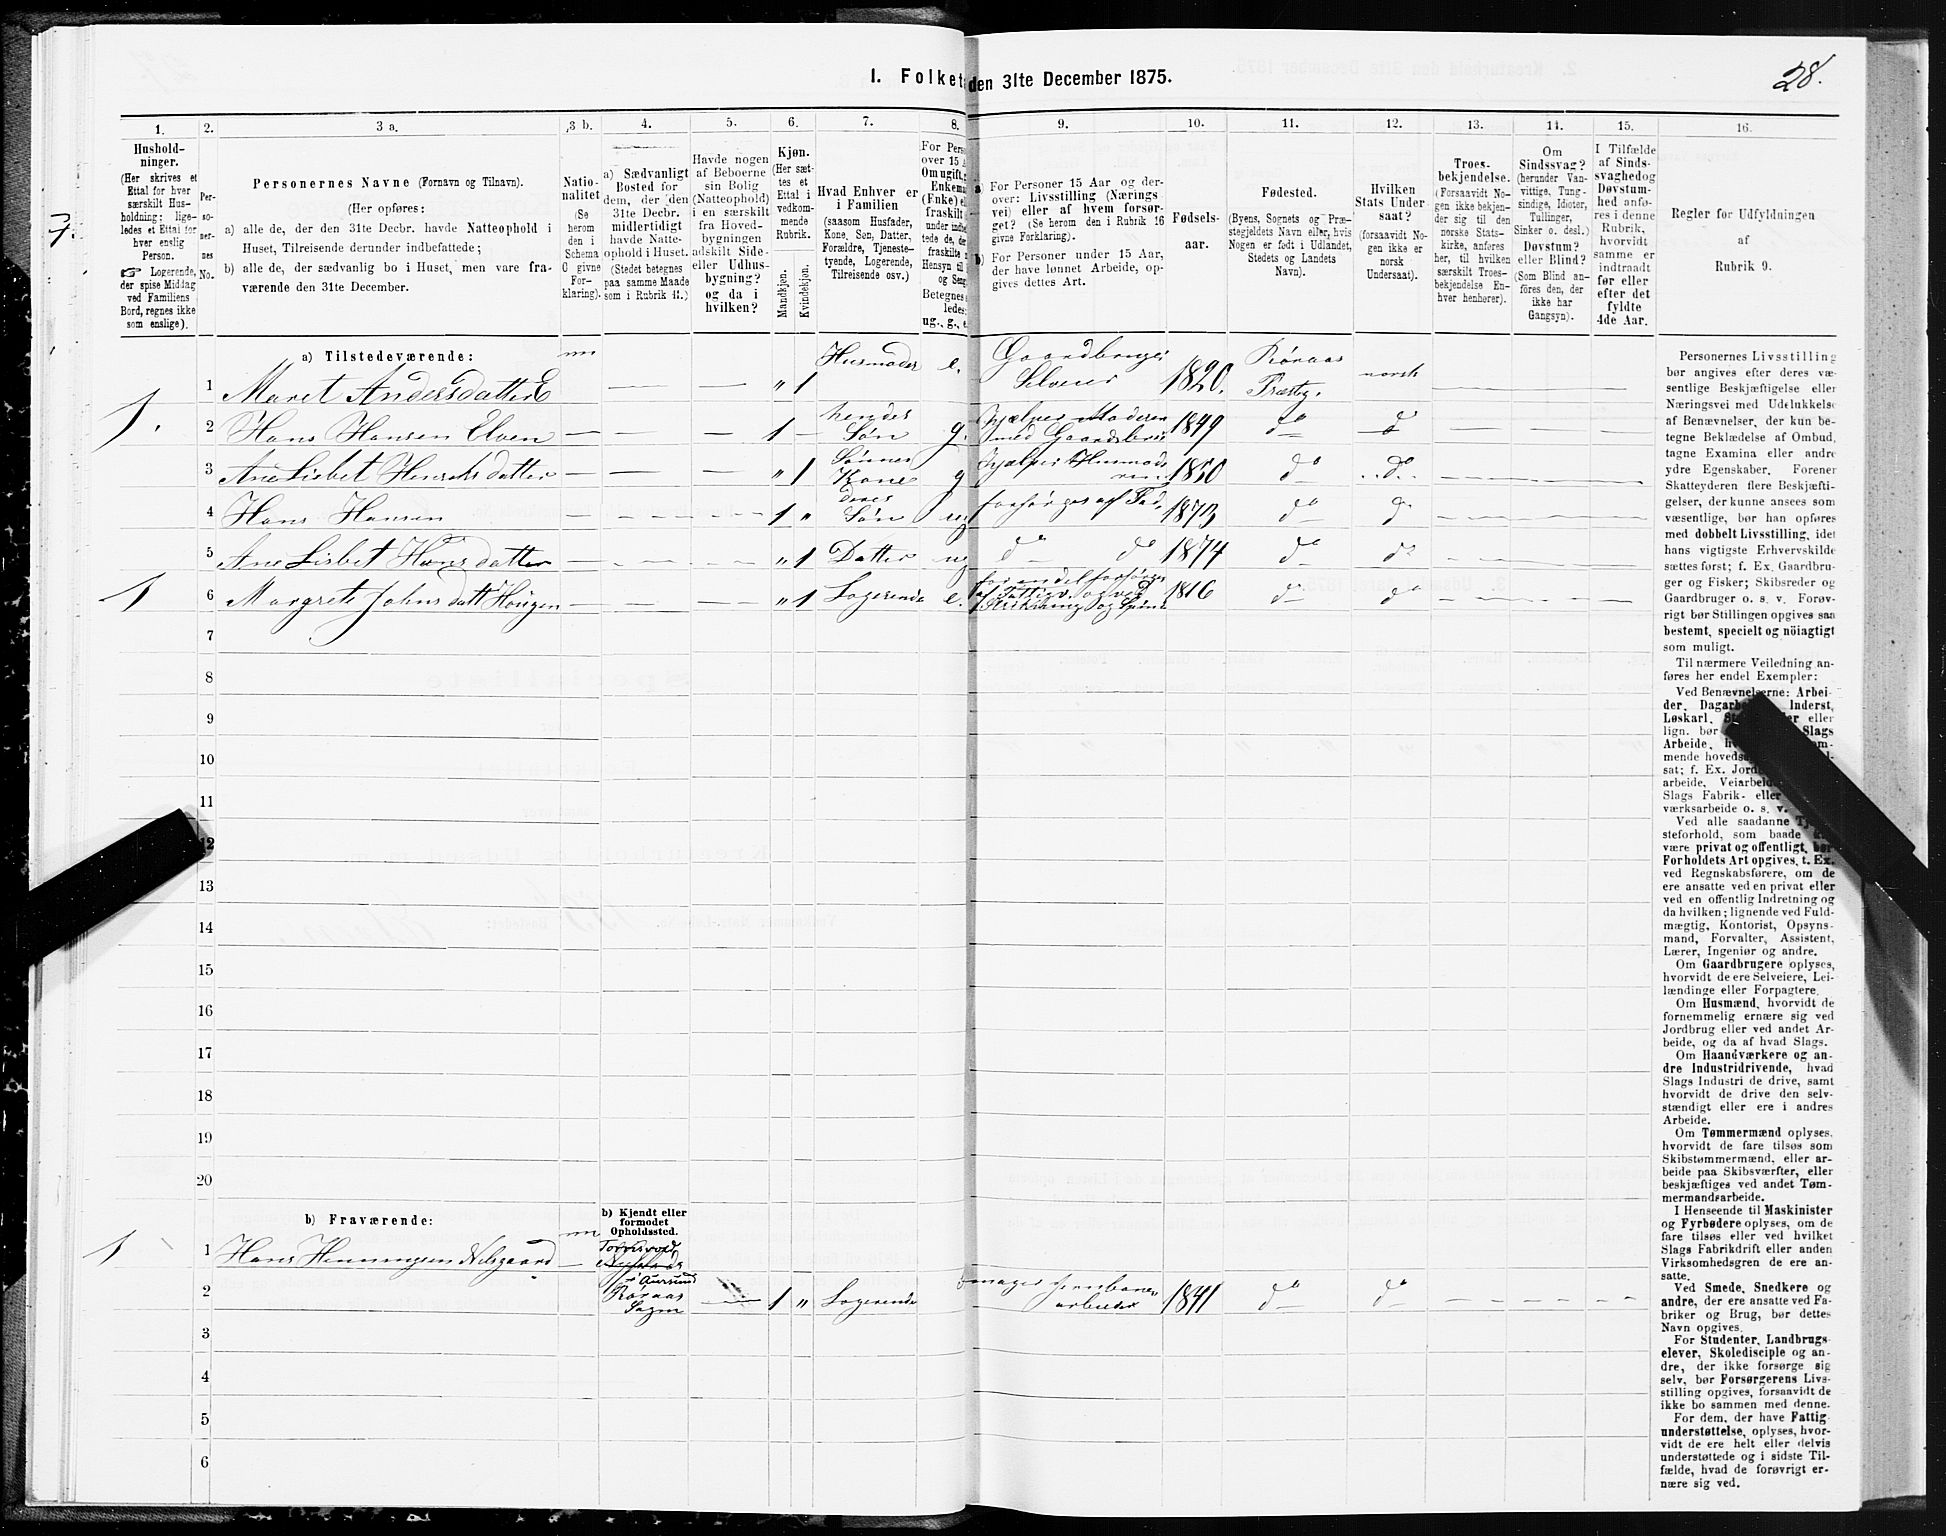 I. Folket den 31te December 1875.
28.
7.
1. 2. 3 a. 3 b. 4. 5. 6. 7. 8. 9. 10. 11. 12. 13. 14. 15. 16.
Hushold-
ninger.
(Her skrives et
Ettal for hver
særskilt Hus-
holdning; lige-
ledes et Ettal for
hver enslig
Person.
☞ Logerende,
der spise Middag
ved Familiens
Bord, regnes ikke
som enslige).
Per-
so-
ner-
nes
No.
Personernes Navne (Fornavn og Tilnavn).
(Her opføres:
a) alle de, der den 31te Decbr. havde Natteophold i
Huset, Tilreisende derunder indbefattede;
b) alle de, der sædvanlig bo i Huset, men vare fra-
værende den 31te December.
Natio-
nalitet
(Se
herom
den i
Schema
C givne
For-
klaring).
a) Sædvanligt
Bosted for
dem, der den
31te Decbr.
midlertidigt
havde Natte-
ophold i Huset.
(Stedet betegnes
paa samme Maade
som i Rubrik 11.)
Havde nogen
af Beboerne
sin Bolig
(Natteophold)
i en særskilt
fra Hoved-
bygningen
adskilt Side-
eller Udhus-
bygning?
og da i
hvilken?
Kjøn.
(Her sæt-
tes et
Ettal i
vedkom-
mende
Rubrik.
Mandkjøn.
Kvindekjøn.
Hvad Enhver er
i Familien
(saasom Husfader,
Kone, Søn, Datter,
Forældre, Tjeneste-
tyende, Logerende,
Tilreisende osv.)
For Pers
over 15 A
Om ugift,
Enkema
(Enke) e
fraskilt
under indbe
tede de, de
fraskilte
Hensyn til
og Seng
Betegnes
ledes:
ug., g., e.
a) For Personer 15 Aar og der-
over: Livsstilling (Nærings
vei) eller af hvem forsør-
get? (Se herom den i Rubrik 16
givne Forklaring).
b) For Personer under 15 Aar,
der have lønnet Arbeide, op-
gives dettes Art.
Fødsels-
aar.
Fødested.
(Byens, Sognets og Præ-
stegjeldets Navn eller, hvis
Nogen er født i Udlandet,
Stedets og Landets
Navn).
Hvilken
Stats Under
saat?
(forsaavidt No-
gen ikke er
norsk
Undersaat).
Troes-
bekjendelse.
(Forsaavidt No-
gen ikke bekjen-
der sig til den
norske Stats-
kirke, anføres
her, til hvilken
særskilt Troes-
bekjendelse En-
hver henhører).
Om
Sindssvag?
(herunder Van-
vittige, Tung-
sindige, Idioter,
Tullinger,
Sinker o. desl.)
Døvstum?
eller Blind?
(Som Blind an-
føres den, der
ikke har
Gangsyn).
I Tilfælde
af Sinds-
svaghed og
Døvstum-
hed anfø-
res i denne
Rubrik,
hvorvidt
samme er
indtraadt
før eller
efter det
fyldte
4de Aar.
Regler for Udfyldningen
af
Rubrik 9.
a) Tilstedeværende:
1 Maret Andersdatter E — — „ 1 Husmoder e. Gaardbruger Selveier 1820. Røraas Præstg. norsk
1. 2 Hans Hansen Elven — — — 1 — hendes Søn g. hjælper Moderen med Gaardsbrug 1849 do do
3 Ane Lisbet Henriksdatter — — — „ 1 Sønnes Kone g hjælper 1850 do do
4 Hans Hansen 1 „ deres Søn ug forsørges af Fad. 1873 do do
5 Ane Lisbet Hansdatter „ 1 Datter ug do do 1874 do do
1 6 Margrete Johnsdatt Hougen „ 1 Logerende e. for en del forsørges af Fattigv. og ved Strikning og Spind 1816 do do
7
8
9
10
11
12
13
14
15
16
17
18
19
20
b) Fraværende:
b) Kjendt eller
formodet
Opholdssted.
1 1 Hans Henningsen Nilsgaard —
Aursund
2 Røraas Sogn — 1 „ Logerende Jernbanearbeider 1841 do do
3
4
5
6
Personernes Livsstilling
bør angives efter deres væ-
sentlige Beskjæftigelse eller
Næringsvei med Udelukkelse
af Benævnelser, der kun be-
tegne Beklædelse af Ombud,
tagne Examina eller andre
ydre Egenskaber. Forener
Skatteyderen flere Beskjæfti-
gelser, der kunne ansees som
væsentlige, bør han opføres
med dobbelt Livsstilling, idet
hans vigtigste Erhvervskilde
sættes først; f. Ex. Gaardbru-
ger og Fisker; Skibsreder og
Gaardbruger o. s. v. Forøv-
rigt bør Stillingen opgives saa
bestemt, specielt og nöiagtigt
som muligt.
Til nærmere Veiledning an-
føres her endel Exempler:
Ved Benævnelserne: Arbei-
der, Dagarbe Inderst,
Løskarl, St er eller
lign. bør Slags
Arbeide, h om-
mende hoveds
sat; f. Ex. Jord
arbeide, Veiarbeid
Slags Fabrik- eller
værksarbeide o. s. v.
Ved alle saadanne Tj
steforhold, som baade
være privat og offentligt, bør
Forholdets Art opgives, t. Ex.
ved Regnskabsførere, om de
ere ansatte ved en privat eller
ved en offentlig Indretning og
da hvilken; lignende ved Fuld-
mægtig, Kontorist, Opsyns-
mand, Forvalter, Assistent,
Lærer, Ingeniør og andre.
Om Gaardbrugere oplyses,
hvorvidt de ere Selveiere, Lei-
lændinge eller Forpagtere.
Om Husmænd, hvorvidt de
fornemmelig ernære sig ved
Jordbrug eller ved andet Ar-
beide, og da af hvad Slags.
Om Haandværkere og an-
dre Industridrivende, hvad
Slags Industri de drive, samt
hvorvidt de drive den selv-
stændigt eller ere i andres
Arbeide.
Om Tømmermænd oplyses,
hvorvidt de fare tilsøs som
Skibstømmermænd, eller ar-
beide paa Skibsværfter, eller
beskjæftiges ved andet Tøm-
mermandsarbeide.
I Henseende til Maskinister
og Fyrbødere oplyses, om de
fare tilsøs eller ved hvilket
Slags Fabrikdrift eller anden
Virksomhedsgren de ere an-
satte.
Ved Smede, Snedkere og
andre, der ere ansatte ved Fa-
briker og Brug, bør dettes
Navn opgives.
For Studenter, Landbrugs-
elever, Skoledisciple og an-
dre, der ikke forsørge sig
selv, bør Forsørgerens Livs-
stilling opgives, forsaavidt de
ikke bo sammen med denne.
For dem, der have Fattig-
understøttelse, oplyses, hvor-
vidt de ere helt eller delvis
understøttede og i sidste Til-
fælde, hvad de forøvrigt er-
nære sig ved.